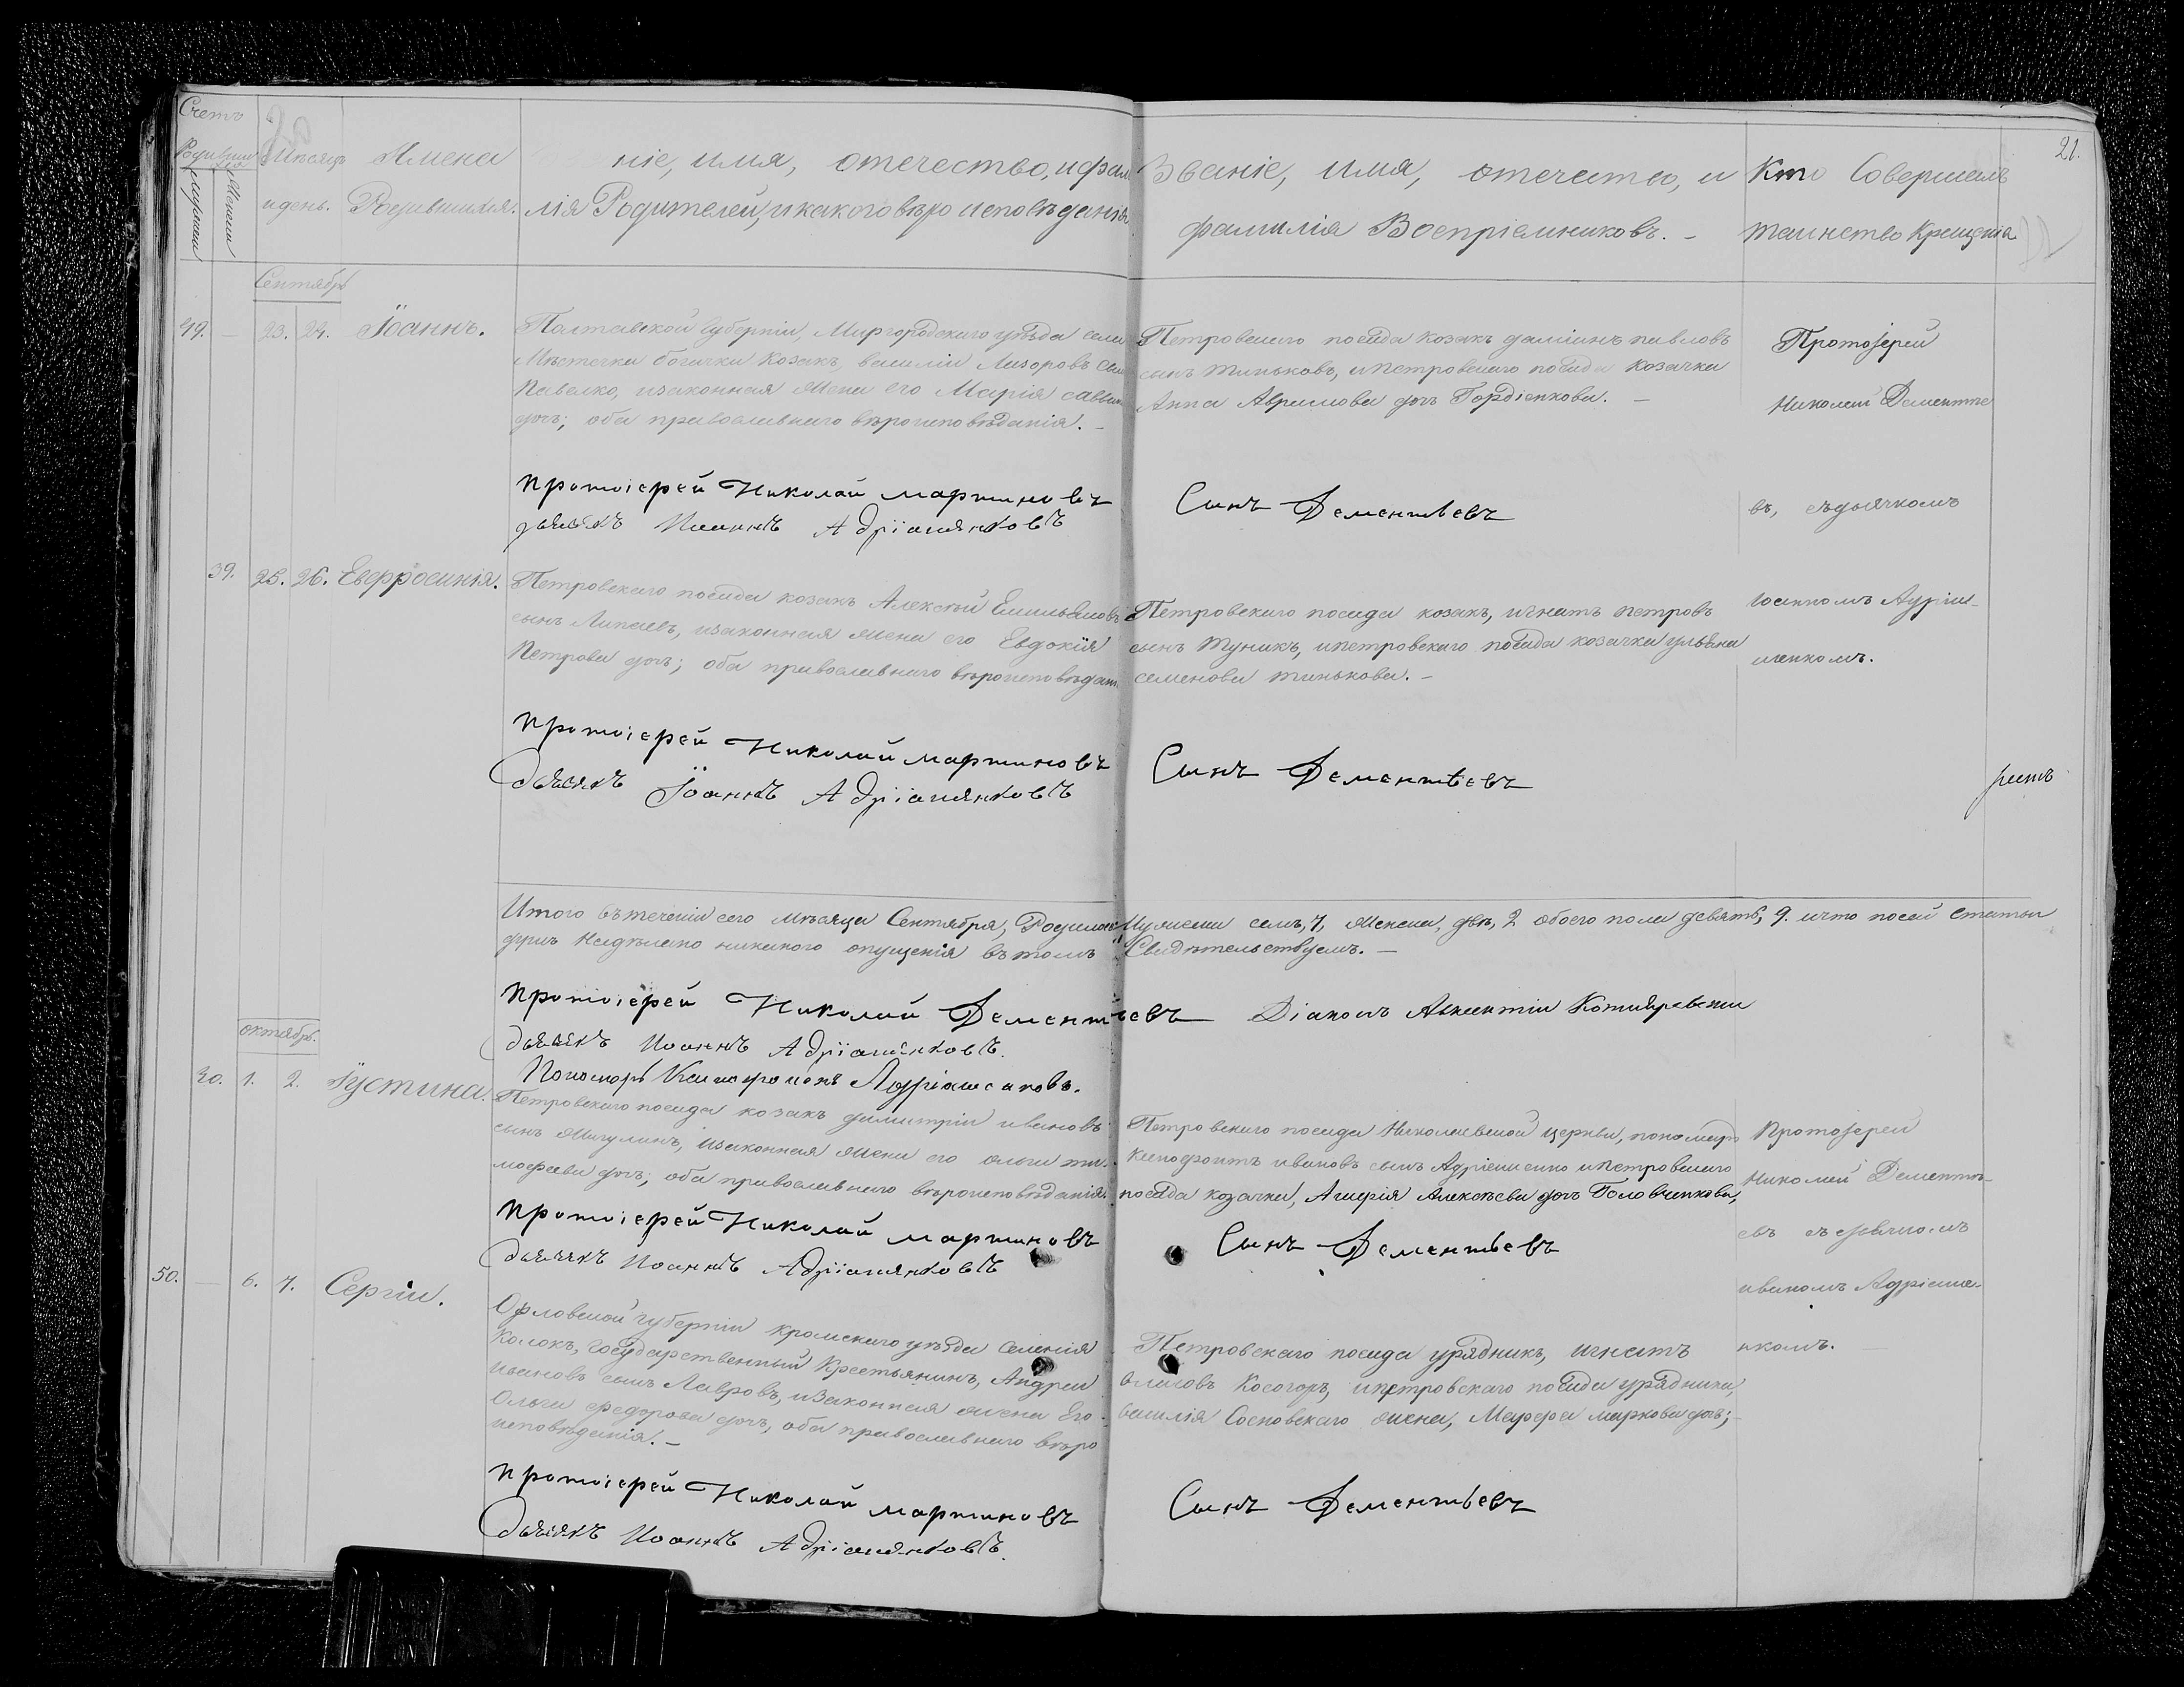 21.
Счетъ
Родившихся
Мужеска
Женска
Месяцъ
и день.
Имена
Родившихся.
ніе, имя, отечество, и фами
лія Родителей, и какого вѣро исповѣданія
Званіе, имя, отечество, и
фамилія Воспріемниковъ. -
Кто Совершалъ
таинство Крещенія
Сентябрь
49. - 23. 24. Іоаннъ.
Полтавской Губерніи, Миргородскаго уѣзда
Мѣстечка богачки Козакъ, василій
Павелко, изаконная жена его Марія саввина
дочь; оба православнаго вѣроисповѣданія. -
Петровскаго посада козакъ даміанъ павловъ
сынъ тиньковъ, ипетровскаго посада козачка
Анна Аврамова дочь Гордіенкова. -
Протоіерей
Николай Дементье
въ, съдьячкомъ
Протоіерей Николай мартиновъ
Сынъ Дементьевъ
дьячекъ Иоаннъ Адріашенковъ
39. 25. 26. Евфросинія.
Петровскаго посада козакъ Алексѣй Емильяновъ
сынъ Липаевъ, изаконная жена его Евдокія
Петрова дочь; оба православнаго вѣроисповѣдан.
Петровскаго посада козакъ, игнатъ петровъ
сынъ туникъ, ипетровскаго посада козачка ульяна
семенова тинькова. -
Іоанномъ Адріаш-
иенкомъ.
Протоіерей Николай мартиновъ
Сынъ Дементьевъ
Дьячекъ Іоаннъ Адріашенковъ
Итого вътеченіи сего мѣсяца Сентября, Родилось Мужеска семь, 7, Женска, двѣ, 2 обоего пола девять, 9. ичто посей статьи
Неделено никакого опущенія вътомъ Свидѣтельствуемъ. -
Протоіерей Николай Дементьевъ Діаконъ Авксентій Котляревскій
дьячекъ Иоаннъ Адріашенковъ.
Пономарь Ксенофонтъ Адріашенковъ.
октябрь.
40. 1. 2. Іустина.
Петровскаго посада козакъ димитрій ивановъ
сынъ Мигулинъ, изаконная жена его ольга ти-
мофеева дочь; оба православнаго вѣроисповѣданія.
Петровскаго посада Николаевской церкви, пономарь
Ксенофонтъ ивановъ сынъ Адріашенко ипетровскаго
посада козачка, Агафія Алексѣева дочь Головченкова,
Протоіерей
Николай Дементь-
евъ съ дьячкомъ
иваномъ Адріаше-
нкомъ.
Протоіерей Николай мартиновъ
Сынъ Дементьевъ
дьячекъ Иоаннъ Адріашенковъ
50. - 6. 7. Сергій.
Орловской губерніи кромскаго уѣзда селенія
Колокъ, Государственный Крестьянинъ, Андрей
ивановъ сынъ Лавровъ, изаконная жена Его
Ольга федорова дочь, оба православнаго вѣро
исповѣданія. -
Петровскаго посада урядникъ, игнатъ
Косогоръ, ипетровскаго посада урядника,
василія Сосновскаго жена, Марфа маркова дочь; -
Протоіерей Николай мартиновъ
Сынъ Дементьевъ
Дьячекъ Иоаннъ Адріашенковъ.